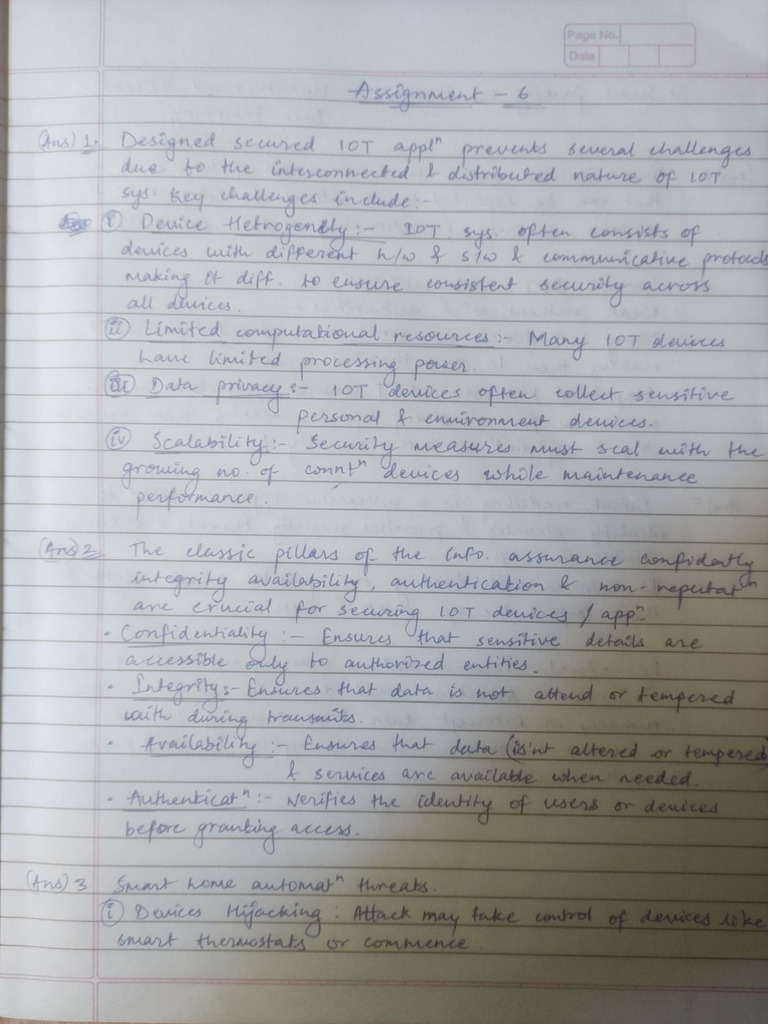 Page No.
Date
Assignment - 6
(Ans) 1. Designed secured IOT applⁿ prevents several challenges
due to the interconnected & distributed nature of IOT
sys. Key challenges include:-
(i) Device Hetrogendty:- IOT sys. often consists of
devices with different h/w & s/w & communicative protocols
making it diff. to ensure consistent security across
all devices.
(ii) Limited computational resources:- Many IOT devices
have limited processing power.
(iii) Data privacy:- IOT devices often collect sensitive
personal & environment devices.
(iv) Scalability:- Security measures must scal with the
growing no. of conntⁿ devices while maintenance
performance.
(Ans) 2 The classic pillars of the info. assurance confidently
integrity availability, authentication & non-reputatⁿ
are crucial for securing IOT devices / appⁿ.
• Confidentiality :- Ensures that sensitive details are
accessible only to authorized entities.
• Integrity:- Ensures that data is not attend or tempered
with during transmits.
• Availability :- Ensures that data (is'nt altered or tempered)
& services are available when needed
• Authenticatⁿ:- Verifies the identity of users or devices
before granting access.
(Ans) 3 Smart home automatⁿ threats.
(i) Devices Hijacking : Attack may take control of devices like
smart thermostats or commence.